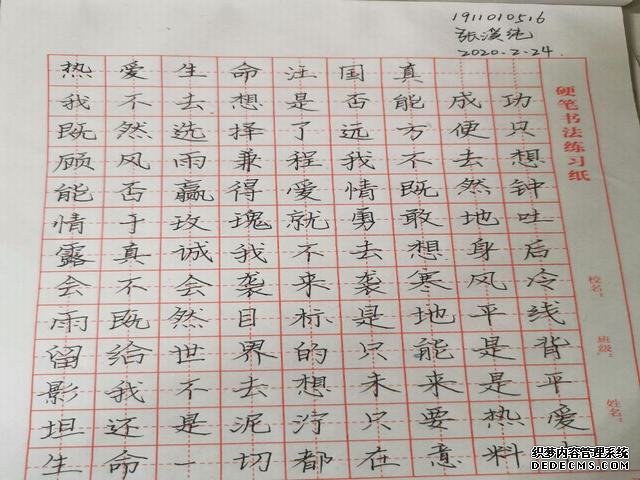 1911010516
张
2020.2.24.
热爱生命汪国真
我不去想是否能成功
既然选择了远方便只
顾风雨兼程我不去想
能否赢得爱情既然钟
情于玫瑰就勇敢地吐
露真诚我不去想身后
会不会袭来袭寒风冷
雨既然目标是地平线
留给世界的只能是背
影我不去想未来是平
坦还是泥泞只要热爱
生命一切都在意料
硬笔书法练习纸
校名:
班级:
姓名:
织梦内容管理系统
DEDECMS.COM